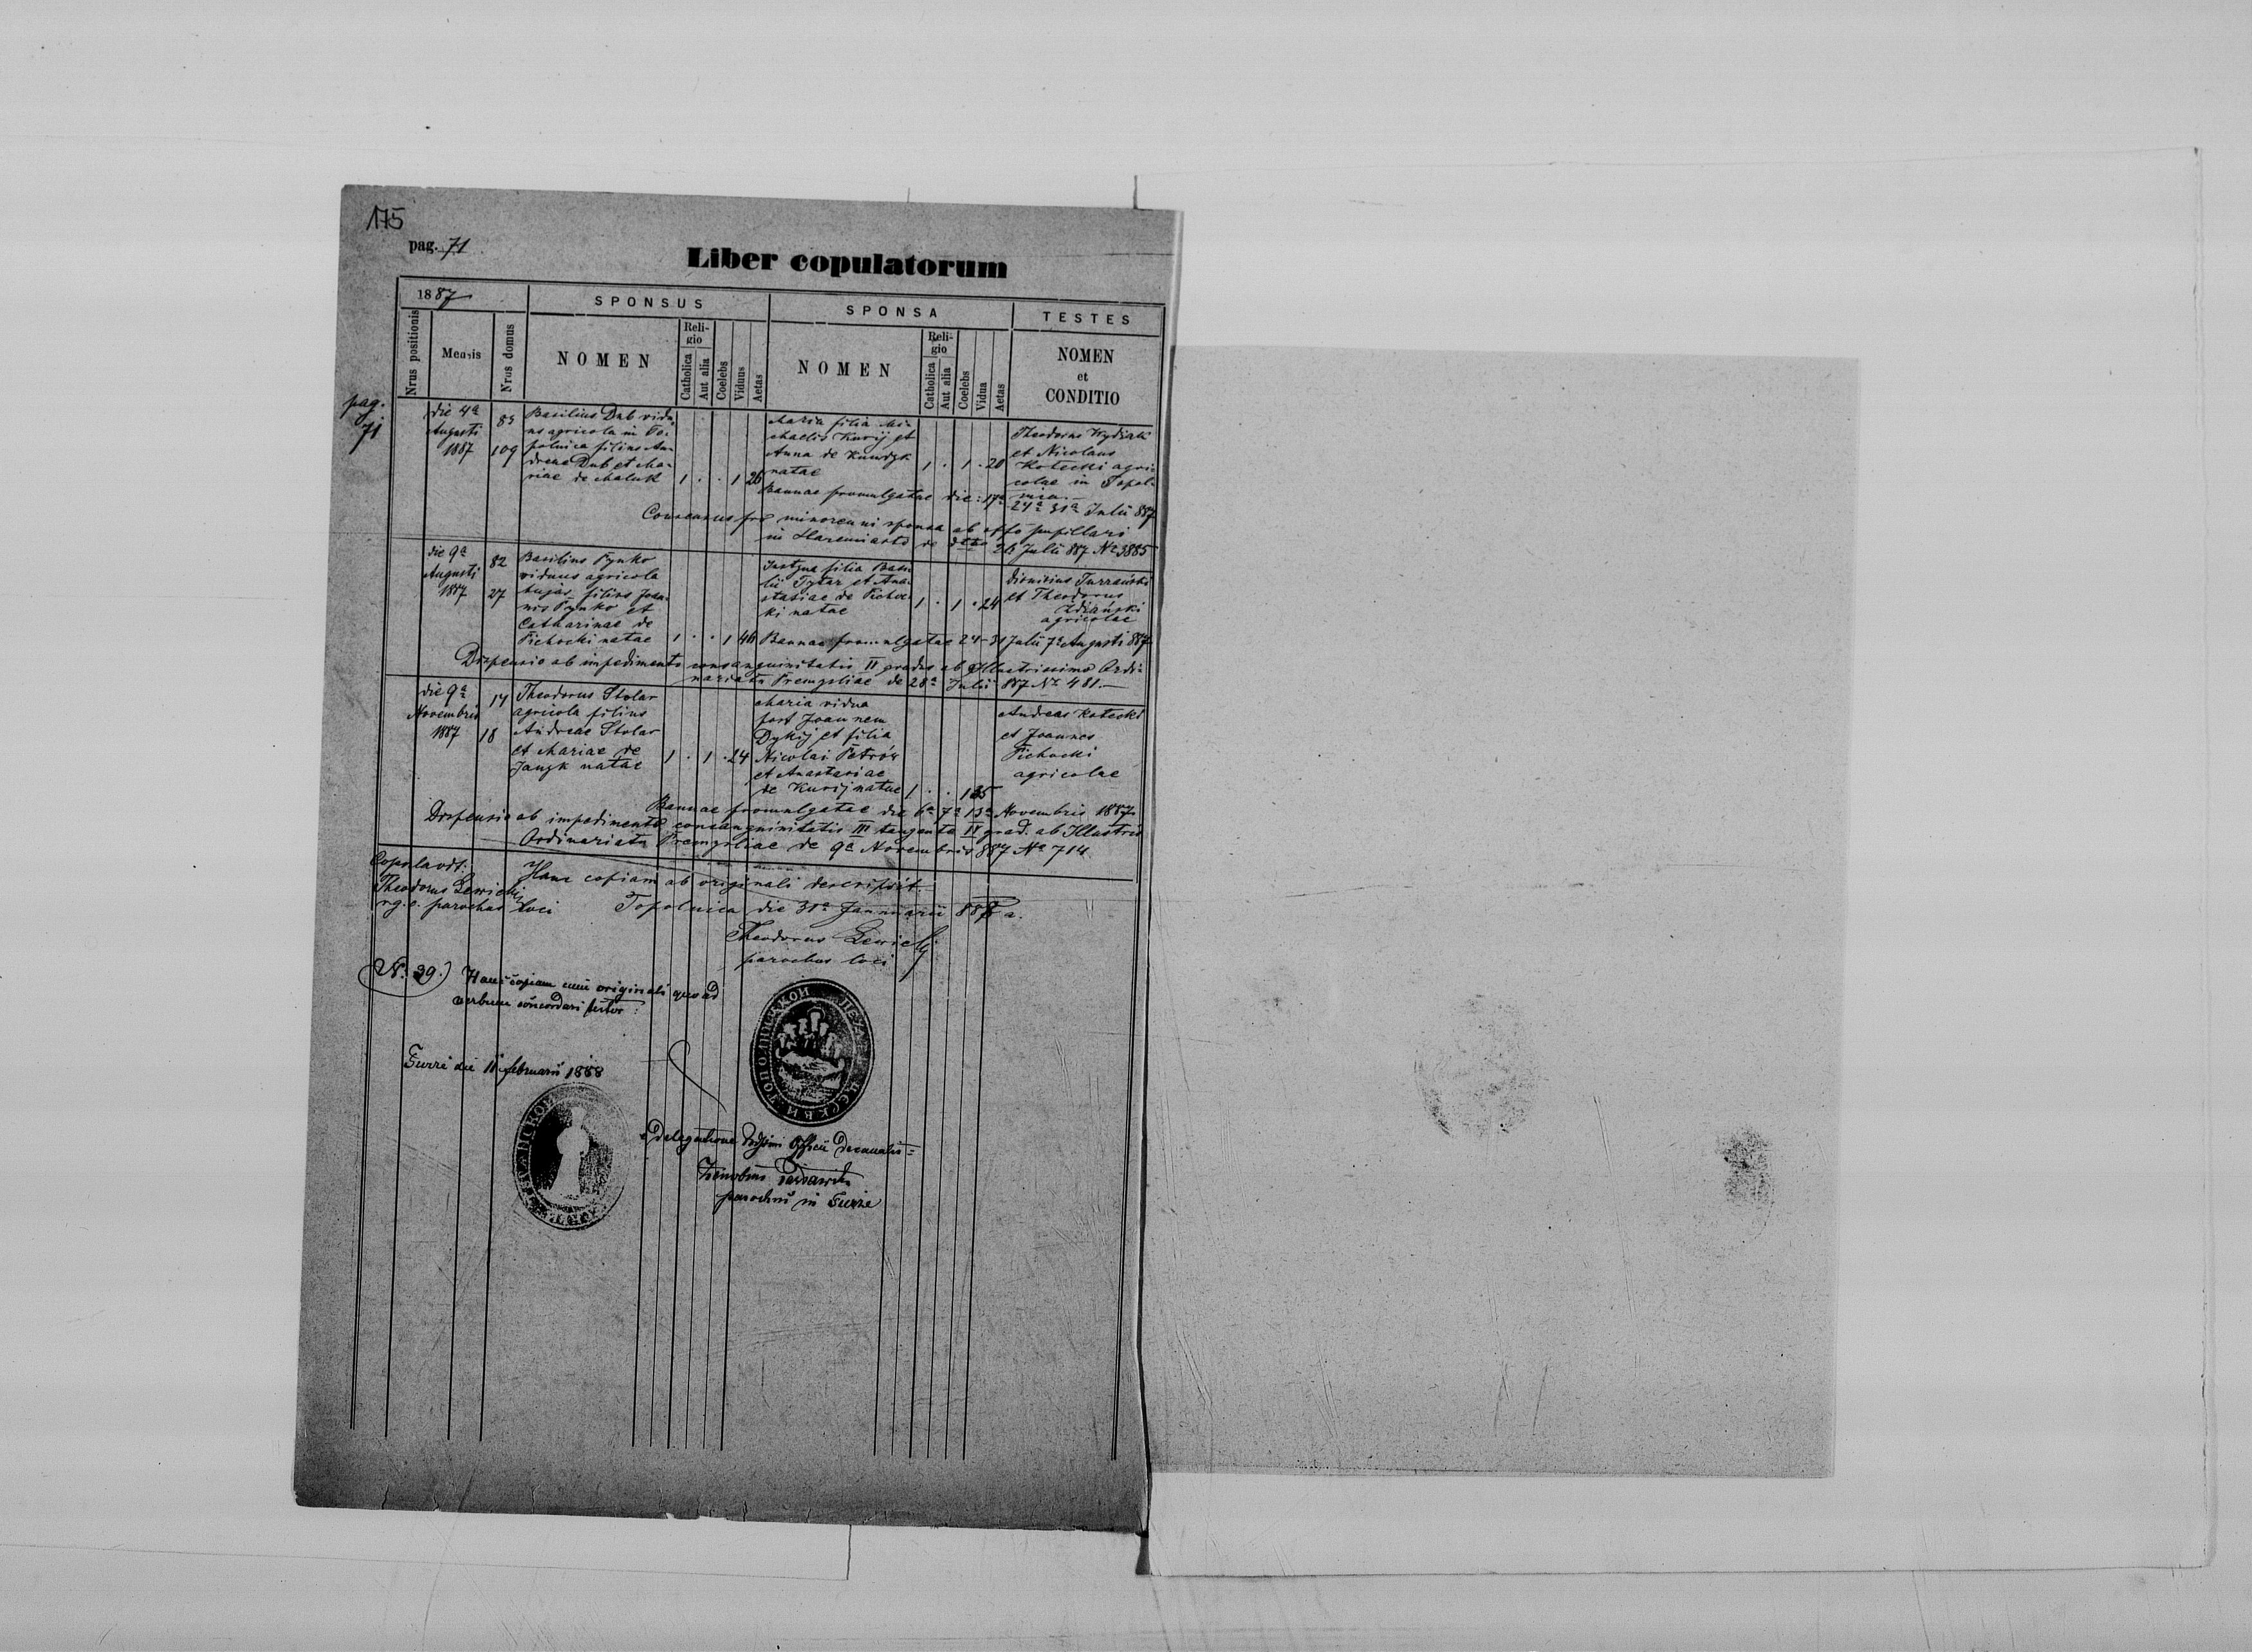 175
pag. 71
Liber copulatorum
1887
SPONSUS
SPONSA
TESTES
Nrus positionis
Mensis
Nrus domus
NOMEN
Religio
Catholica
Aut alia
Coelebs
Viduus
Aetas
NOMEN
Religio
Catholica
Aut alia
Coelebs
Vidua
Aetas
NOMEN
et
CONDITIO
pag.
71
die 4a
Augusti
1887
85
109
Basilius Dub vidu-
us agricola in To-
polnica filius An-
dreae Dub et Ma-
riae de Maluk
1 . . 1 26
Maria filia Mi-
chaelis Kurij et
Anna de Kundyk
natae
1 . 1 . 20
Theodorus Wydiak
et Nicolaus
Kotecki agri-
colae in Topol-
nica.
Bannae promulgatae die: 17a
24a 31a Julii 887
Consensus pro minorenni sponsa ab offo pupillari
in Staremiasto de dtto 26 Julii 887 No 3885
die 9a
Augusti
1887
82
27
Basilius Pynko
viduus agricola
hujas filius Joan-
nis Pynko et
Catharinae de
Pichocki natae
1 . . 1 46
Justyna filia Basi-
lii Tytar et Ana-
stasiae de Pichoc-
ki natae
1 . 1 . 24
Dionisius Turzański
et Theodorus
Zdzański
agricolae
Bannae promulgatae 24-31 Julii 7a Augusti 887
Dispensio ab impedimento consanguinitatis II gradus ab Illustrissimo Ordi-
nariatu Premysliae de 28a Julii 887 No 481.
die 9a
Novembris
1887
14
18
Theodorus Stolar
agricola filius
Andreae Stolar
et Mariae de
Jauzk natae
1 . 1 . 24
Maria vidua
post Joannem
Dykij et filia
Nicolai Petrów
et Anastasiae
de Kurij natae
1 . . 1 35
Andreas Kotecki
et Joannes
Pichocki
agricolae
Bannae promulgatae die 6a 7a 13a Novembris 1887
Dispensio ab impedimento consanguinitatis III tangente IV grad. ab Illustris
Ordinariatu Premysliae de 9a Novembris 887 No 714
Copulavit:
Theodorus Lewicky
rg.c. parochus loci
Hanc copiam ab originali descripsit
Topolnica die 31a Januarii 888 a.
Theodorus Lewicky
parochus loci
N. 39.)
Hanc copiam cum originali quoad
verbum concordari testor:
Turze die 11 februarii 1888
ТОПОЛНИЦКОИ
ЦЕРКВИ
E delegatione Officii Decanalis
parochus in Turze